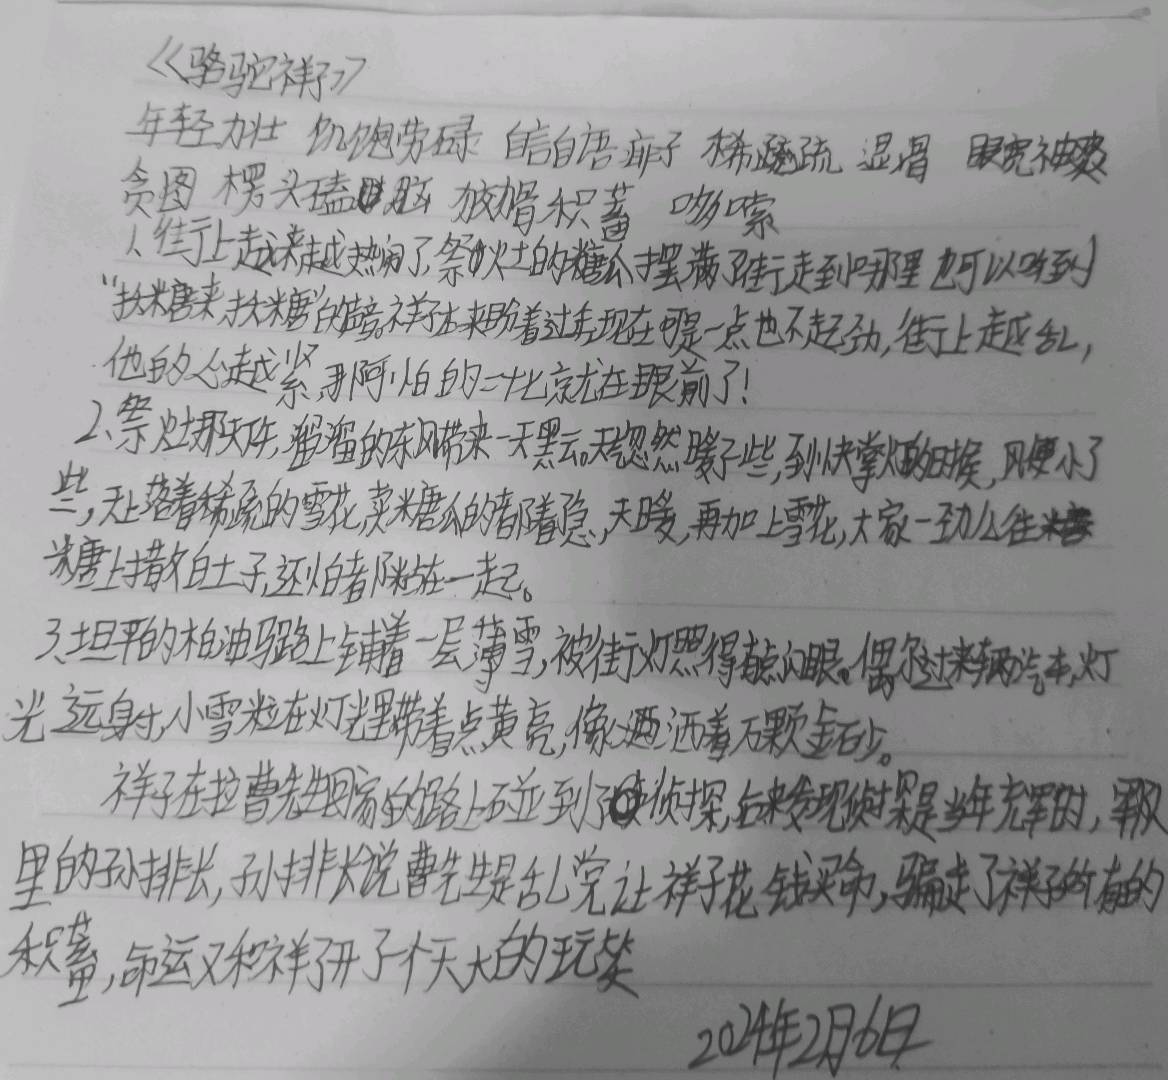 《骆驼祥子》
年轻力壮 饥饱劳碌 自言自语 痱子 稀疏 湿滑
贪图 楞头磕脑 狡猾 积蓄 哆嗦
1、街上越来越热闹了,祭灶的糖瓜摆满了街,走到哪里也可以听到
“扶糖来,扶糖”的声音。祥子本来盼着过年,现在可是一点也不起劲,街上越乱,
他的心越紧,那可怕的二十七就在眼前了!
2、祭灶那天下午,溜溜的东风带来一天黑云。天忽然暖了些,到快掌灯的时候,风更小了
些,天上落着稀疏的雪花,卖糖瓜的都着急,天暖,再加上雪花,大家一劲么往
糖上撒白土子,还怕都粘在一起。
3、坦平的柏油马路上铺着一层薄雪,被街灯照得有点闪眼。偶尔过来辆汽车,灯
光远射,小雪粒在灯光里带着点黄亮,像洒着万颗金砂。
祥子在拉曹先生回家的路上碰到了侦探,后来发现侦探是当年充军时,军队
里的孙排长,孙排长说曹先生是乱党让祥子花钱买命,骗走了祥子所有的
积蓄,命运又和祥子开了个天大的玩笑
2024年2月6日